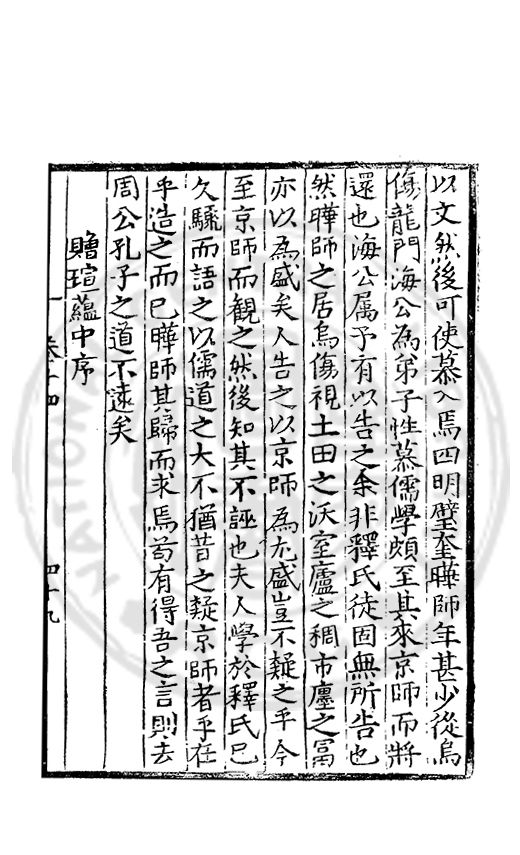 以文然後可使慕入焉四明璧奎曄師年甚少從烏
傷龍門海公為弟子性慕儒學頗至其來京師而將
還也海公属予有以告之余非釋氏徒固無所告也
然曄師之居烏傷視土田之沃室廬之稠市廛之冨
亦以為盛矣人告之以京師為尤盛豈不疑之乎今
至京師而觀之然後知其不誣也夫人學於釋氏已
久驟而語之以儒道之大不猶昔之疑京師者乎在
乎造之而已曄師其歸而求焉茍有得吾之言則去
周公孔子之道不遠矣
贈瑄蘊中序
卷十四
四十九